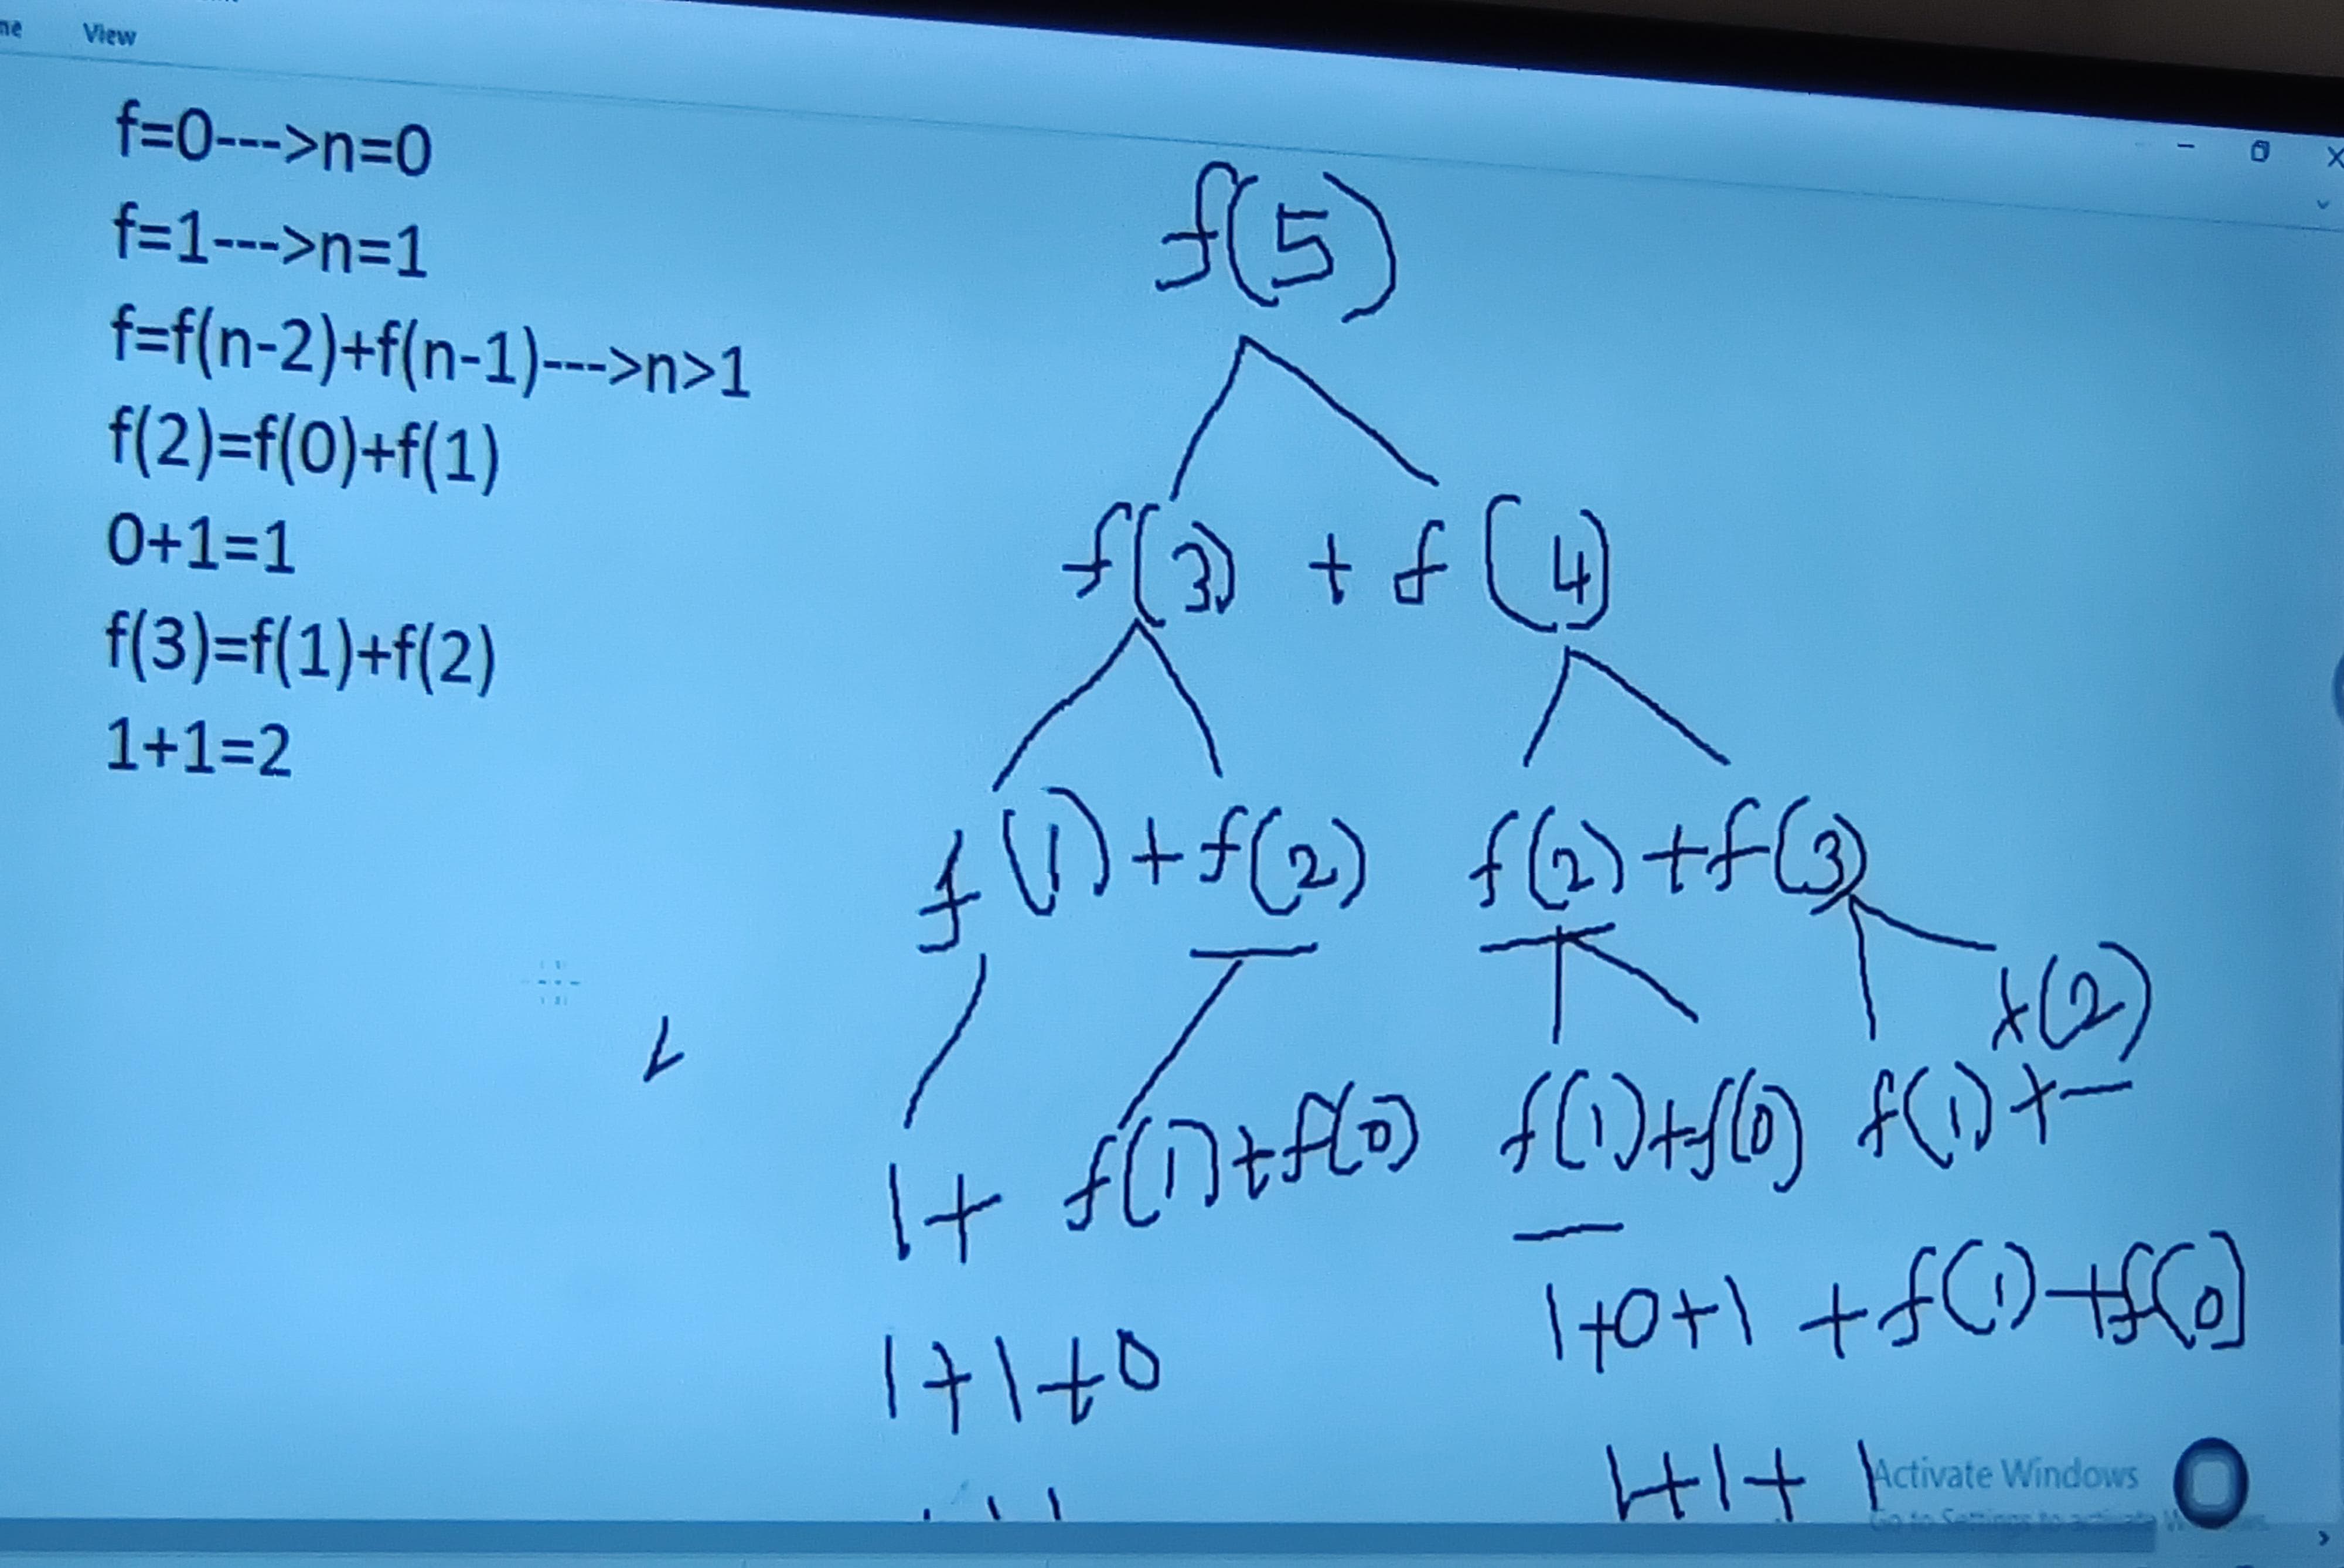 View
f=0--->n=0
f=1--->n=1
f=f(n-2)+f(n-1)--->n>1
f(2)=f(0)+f(1)
0+1=1
f(3)=f(1)+f(2)
1+1=2
f(5)
f(3) + f(4)
f(1)+f(2) f(2)+f(3)
f(2)
1+ f(1)+f(0) f(1)+f(0) f(1)+
1+0+1 +f(1)+f(0)
1+1+0
1+1+1
Activate Windows
Go to Settings to activate